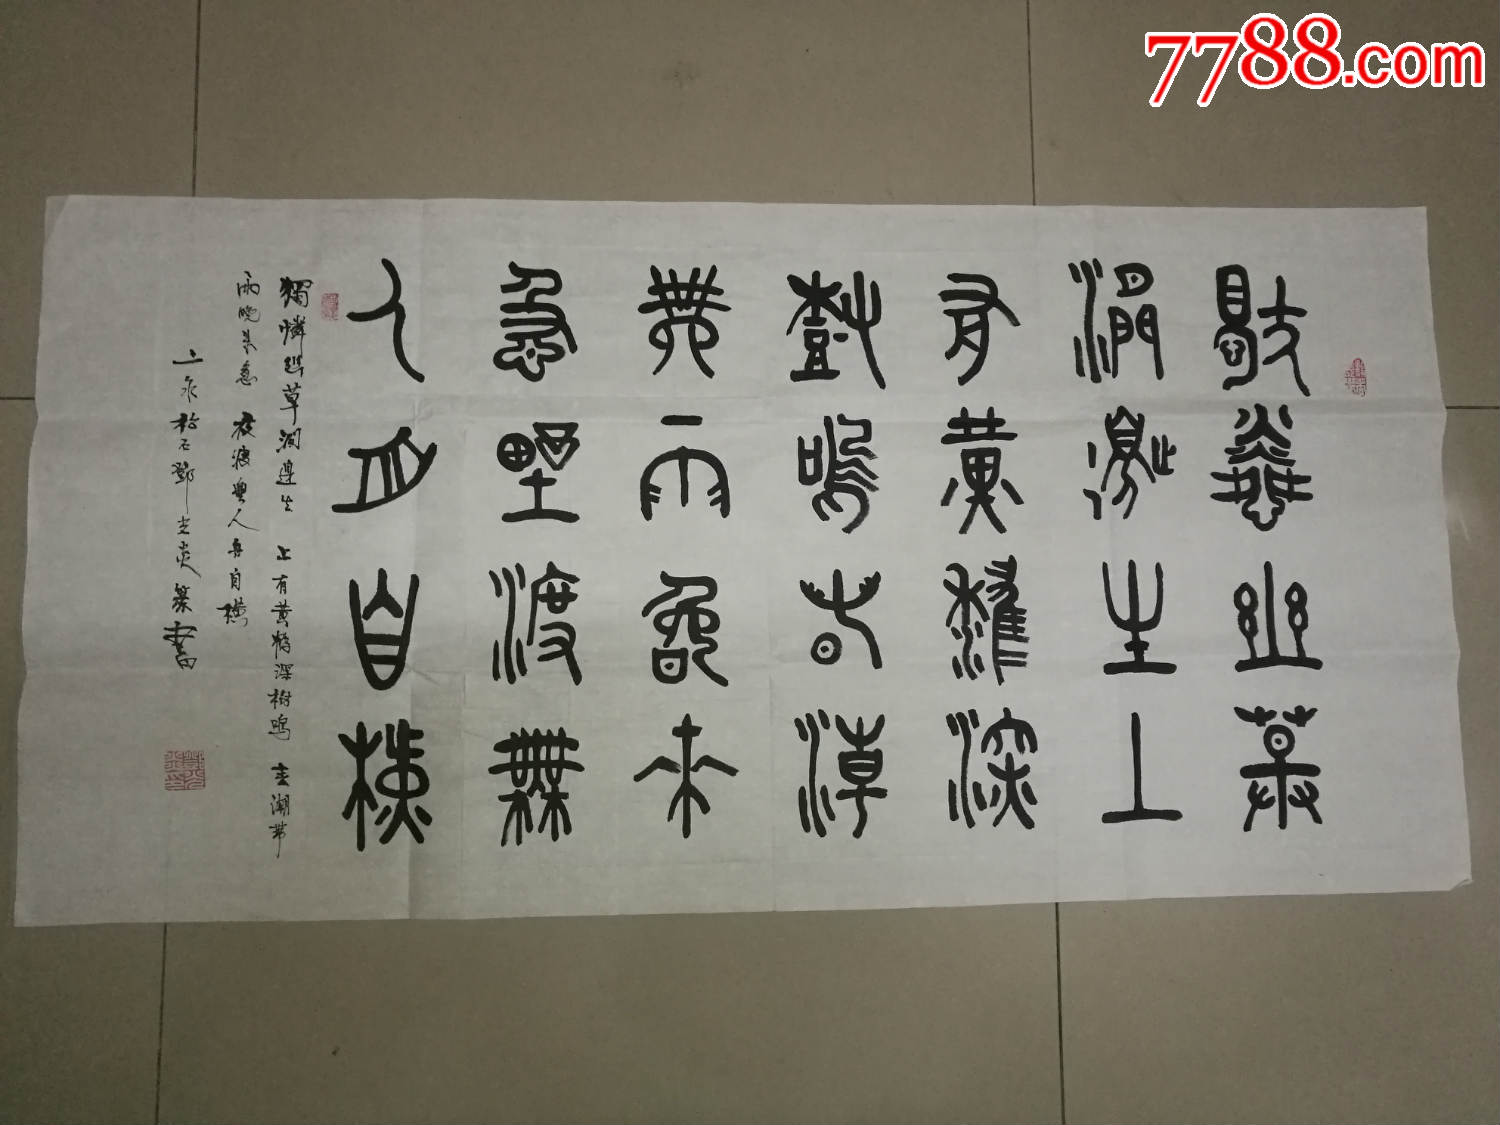 7788.com
獨憐幽草
澗邊生上
有黃鸝深
樹鳴春潮
帶雨晚來
急野渡無
人舟自橫
獨憐幽草澗邊生 上有黃鸝深樹鳴 春潮帶
雨晚來急 渡無人舟自橫
鄧立炎篆書